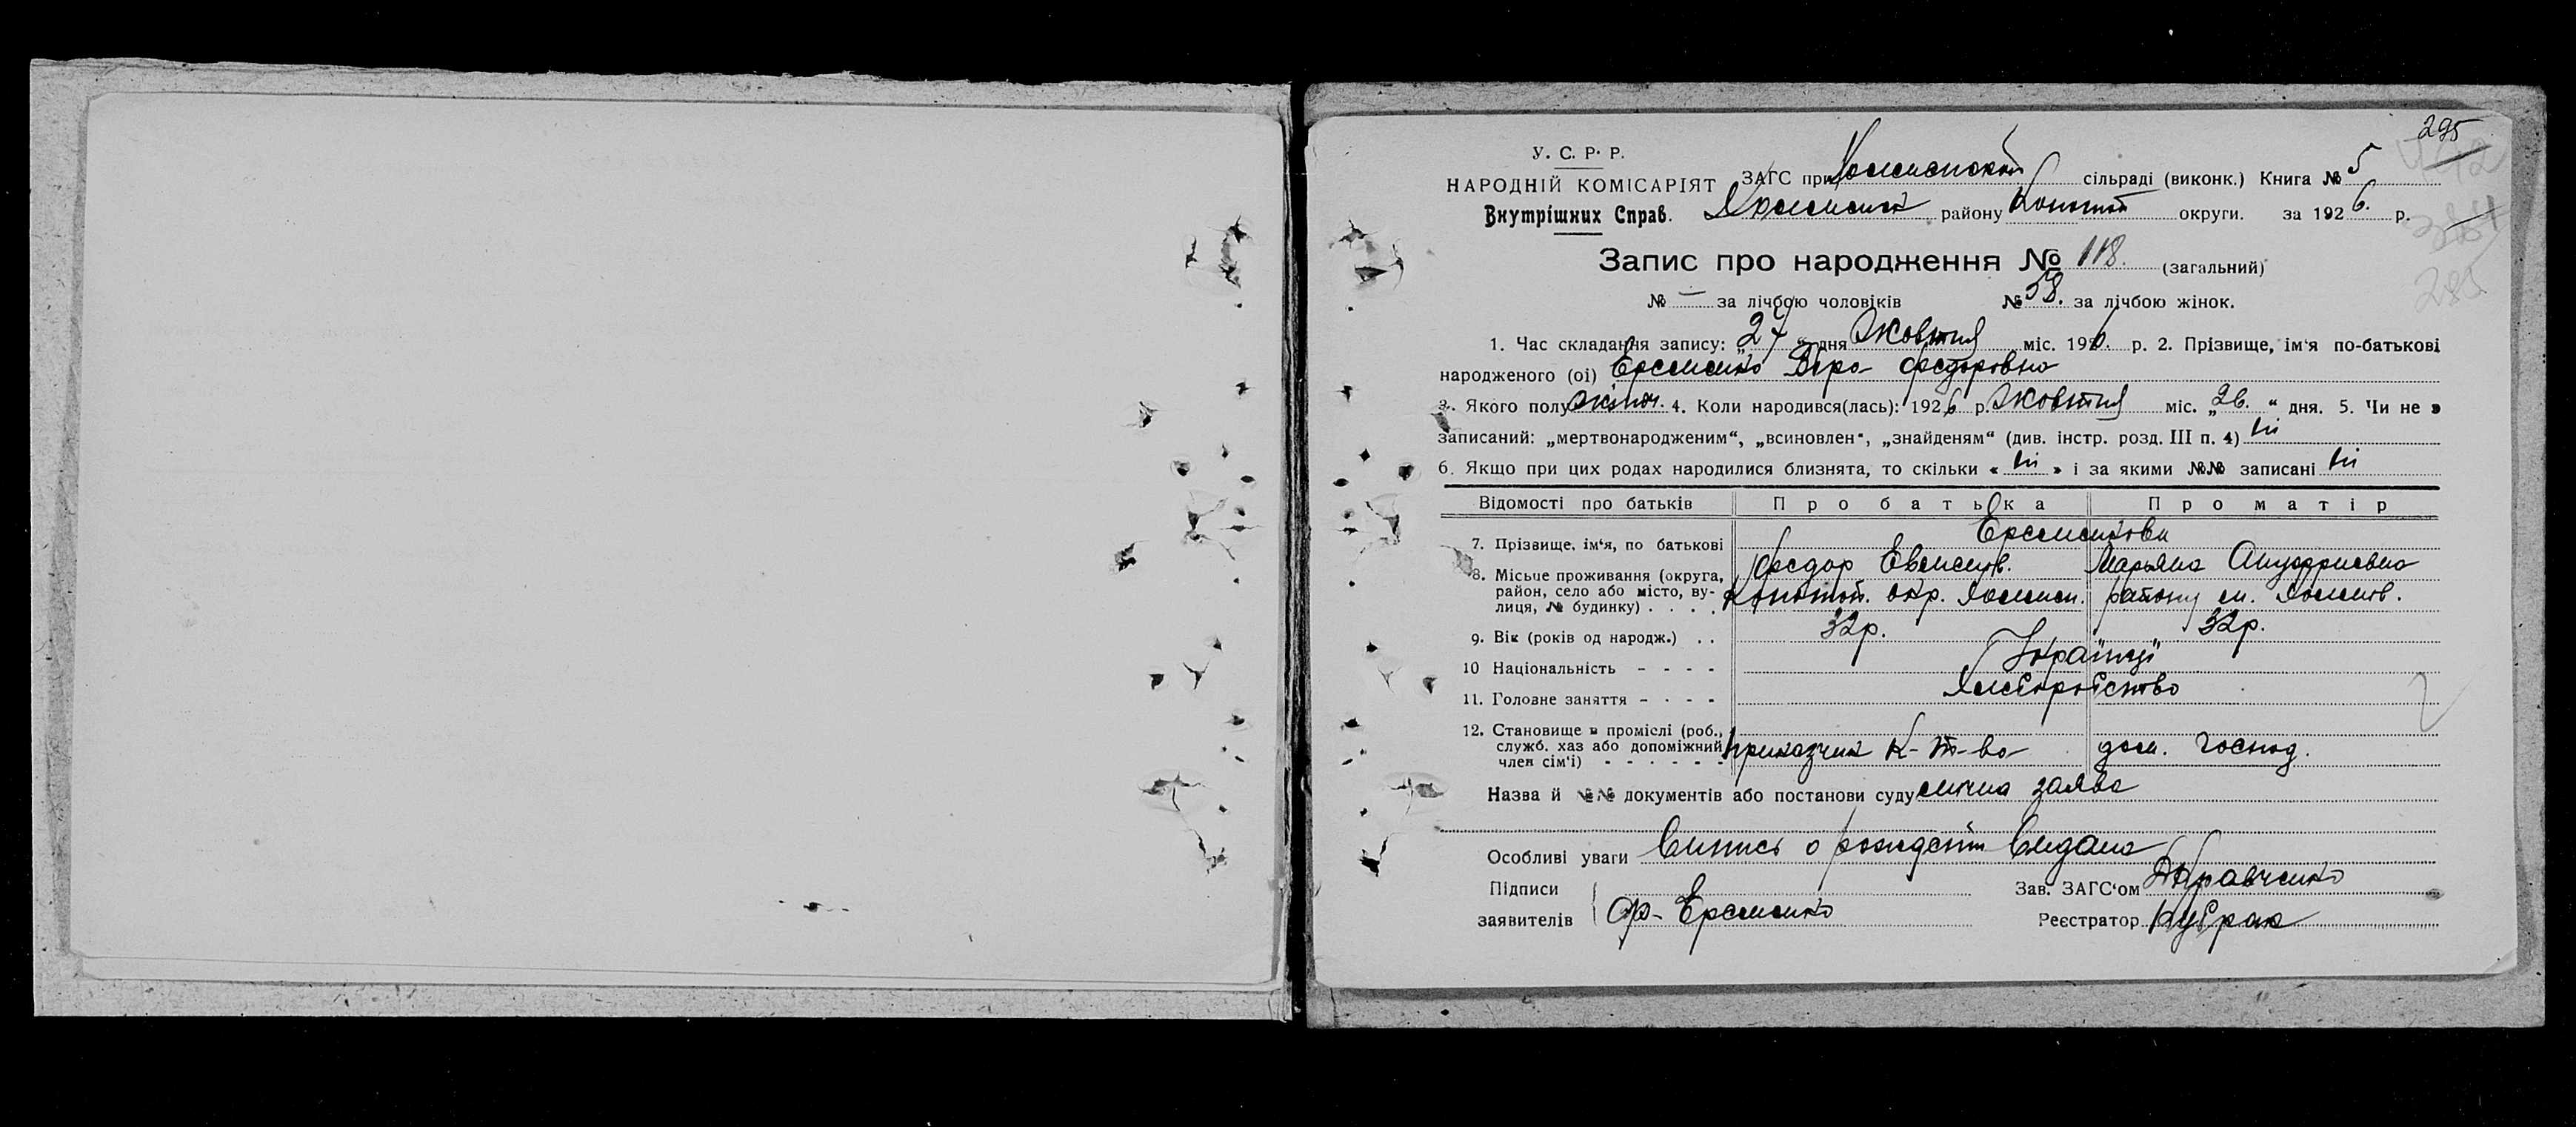 295
У. С. Р. Р.
НАРОДНІЙ КОМІСАРІЯТ
Внутрішних Справ.
ЗАГС при сільраді (виконк.) Книга № 5
району Конотоп округи. за 1926 р.
Запис про народження № 118. (загальний)
№ — за лічбою чоловіків № 58. за лічбою жінок.
1. Час складання запису: „27“ дня Жовтня міс. 1926. р. 2. Прізвище, ім‘я по-батькові
народженого (ої) Еременко Вера Федоровна
3. Якого полу жіноч. 4. Коли народився(лась): 1926 р. Жовтня міс. „26.“ дня. 5. Чи не є
записаний: „мертвонародженим“, „всиновлен“, „знайденям“ (див. інстр. розд. III п. 4) ні
6. Якщо при цих родах народилися близнята, то скільки « ні » і за якими №№ записані ні
Відомості про батьків Про батька Про матір
7. Прізвище, ім‘я, по батькові Еременкови
Федор Марьяна Ануфриевна
8. Місьце проживання (округа, район, село або місто, вулиця, № будинку) . . . . Конотоп. окр. району м.
9. Вік (років од народж.) . . 32р. 32р.
10 Національність - - - - Українці
11. Головне заняття - - - - Хліборобство
12. Становище в проміслі (роб., служб. хаз або допоміжний член сім‘ї) - - - - - - приказчик К-т-ва дом. господ.
Назва й №№ документів або постанови суду заява
Особливі уваги Випись о рождении видана
Підписи
заявителів Ф- Еременко
Зав. ЗАГС‘ом
Реєстратор